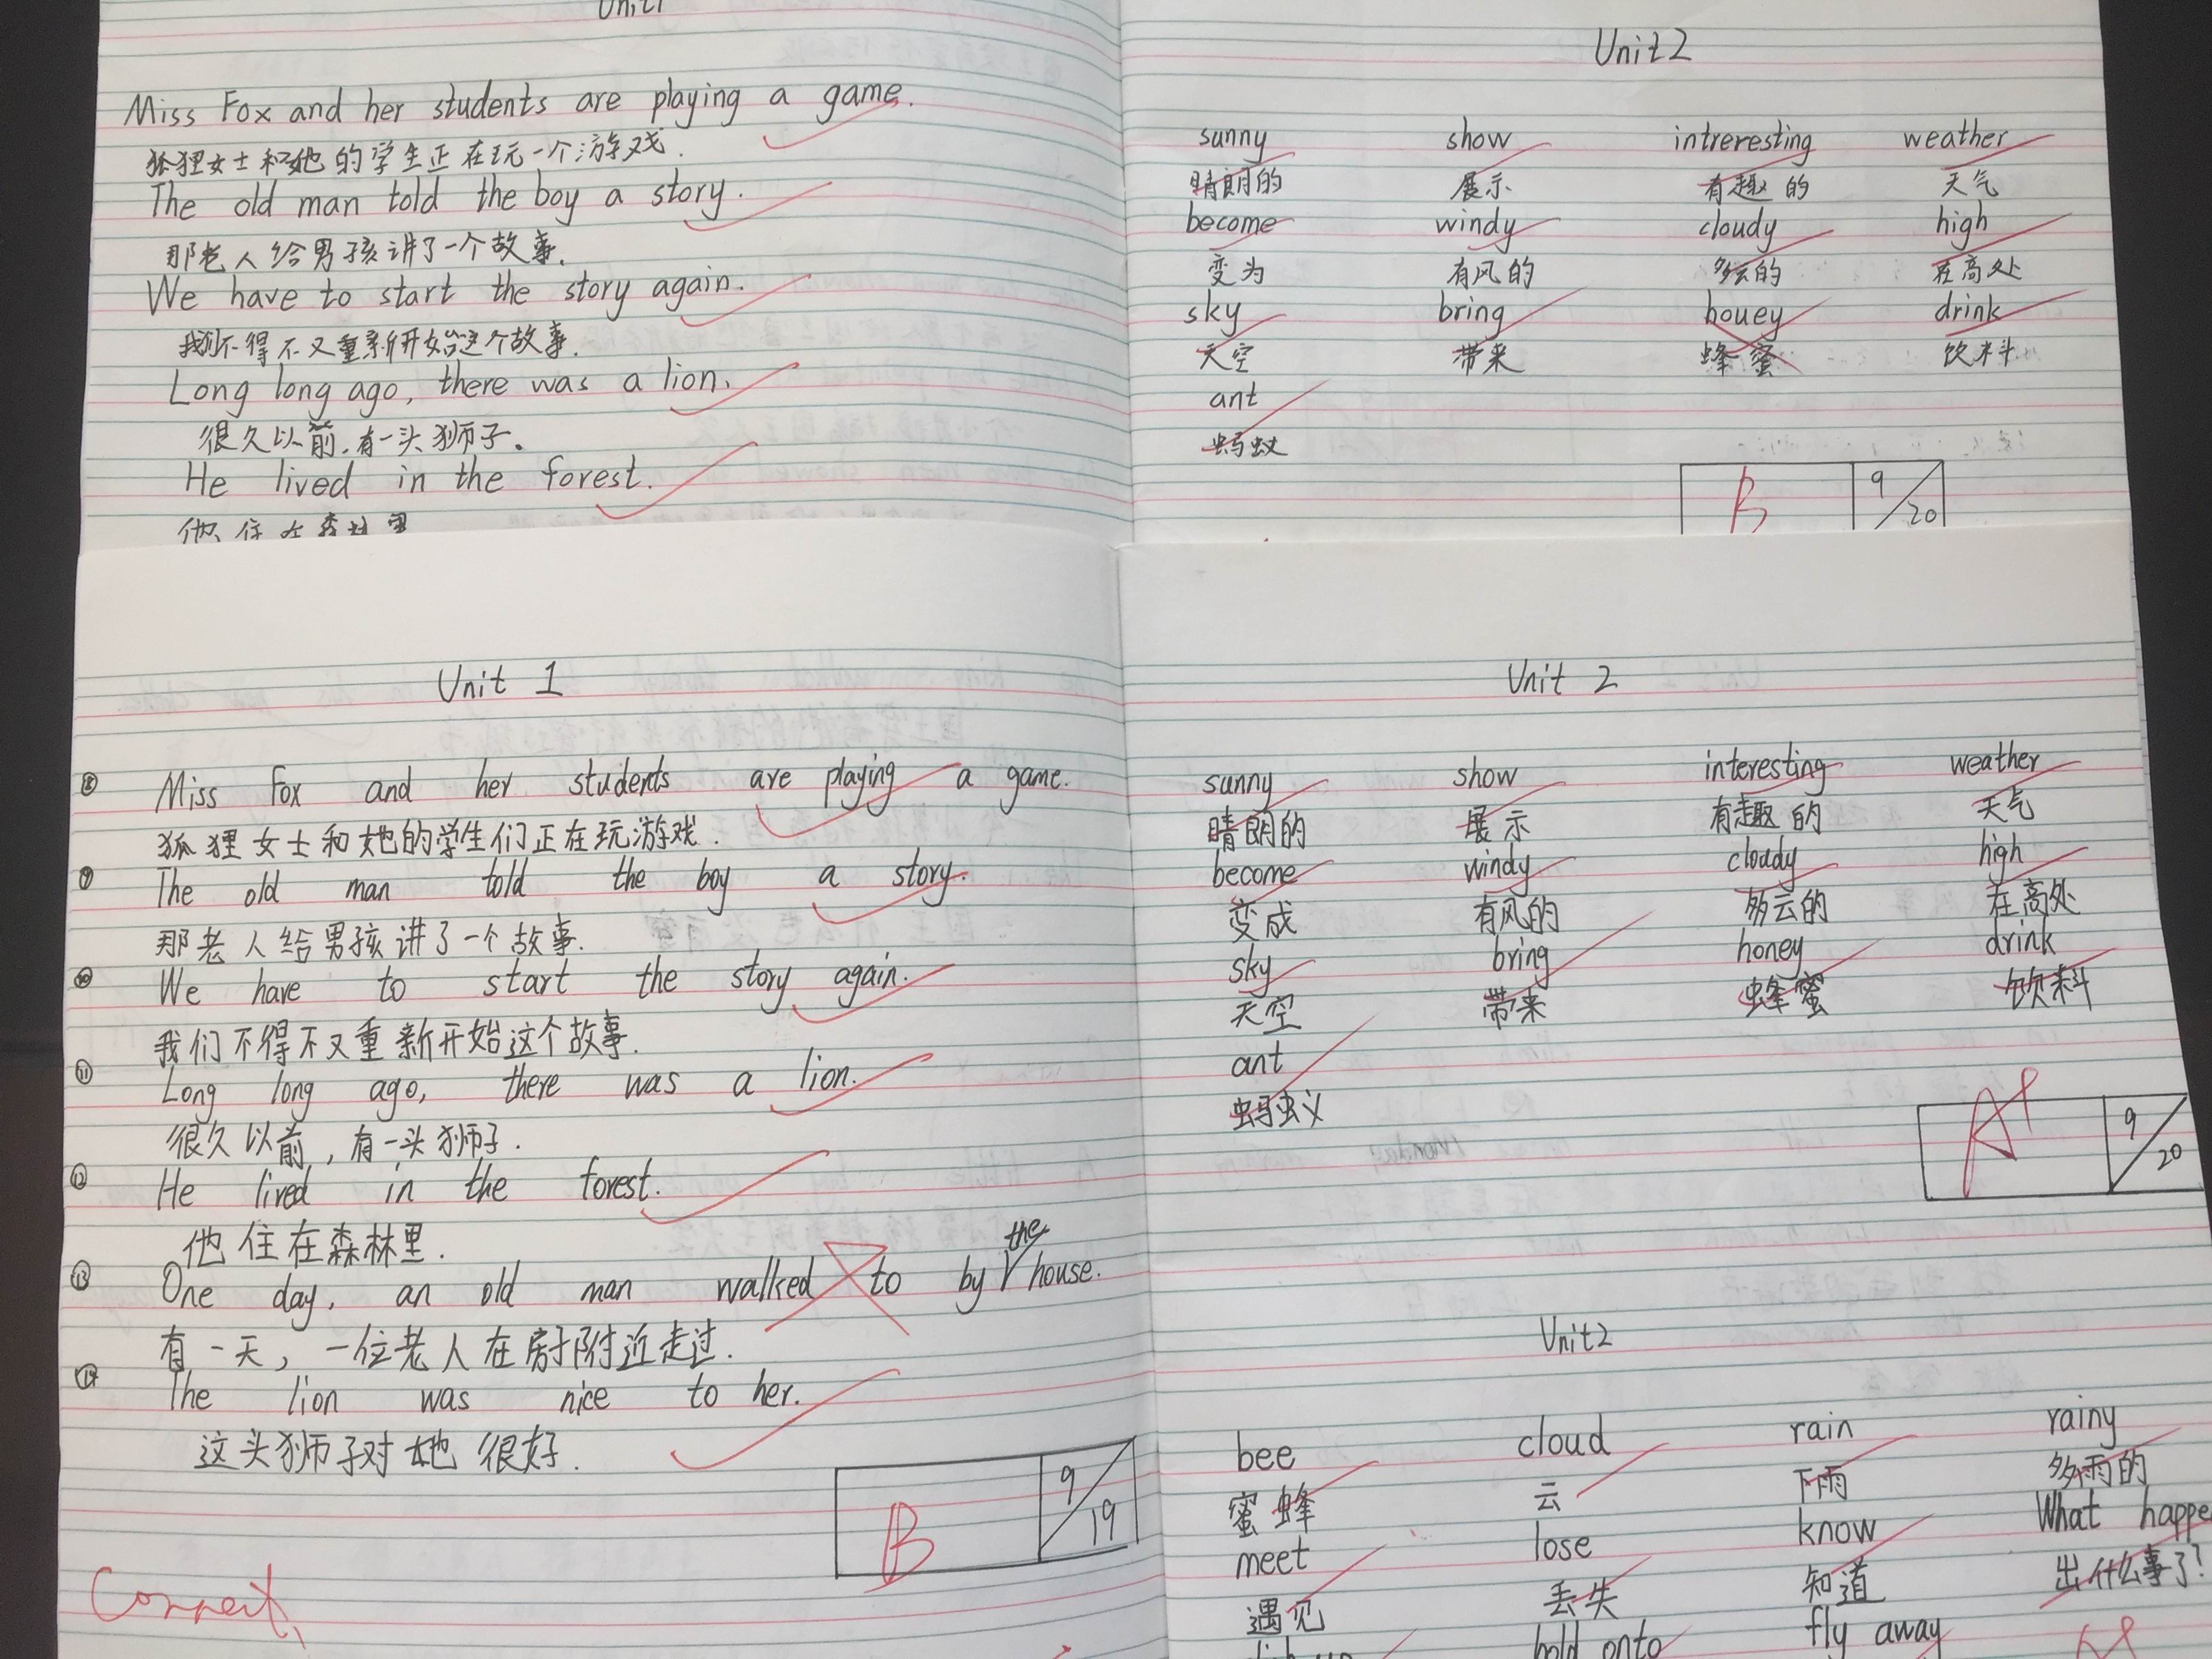 Unit1
Miss Fox and her students are playing a game.
狐狸女士和她的学生正在玩一个游戏.
The old man told the boy a story.
那老人给男孩讲了一个故事.
We have to start the story again.
我们不得不又重新开始这个故事.
Long long ago, there was a lion.
很久以前,有一头狮子。
He lived in the forest.
他住在森林里
Unit2
sunny show intreresting weather
晴朗的 展示 有趣的 天气
become windy cloudy high
变为 有风的 多云的 在高处
sky bring houey drink
天空 带来 蜂蜜 饮料
ant
蚂蚁
B 9/20
Unit 1
⑧ Miss Fox and her students are playing a game.
狐狸女士和她的学生们正在玩游戏.
⑨ The old man told the boy a story.
那老人给男孩讲了一个故事.
⑩ We have to start the story again.
我们不得不又重新开始这个故事.
⑪ Long long ago, there was a lion.
很久以前,有一头狮子.
⑫ He lived in the forest.
他住在森林里.
the
⑬ One day, an old man walked to by house.
有一天,一位老人在房子附近走过.
⑭ The lion was nice to her.
这头狮子对她很好.
B 9/19
Correct
Unit 2
sunny show interesting weather
晴朗的 展示 有趣的 天气
become windy cloudy high
变成 有风的 多云的 在高处
sky bring honey drink
天空 带来 蜂蜜 饮料
ant
蚂蚁
A+ 9/20
Unit2
bee cloud rain rainy
蜜蜂 云 下雨 多雨的
meet lose know What happe
遇见 丢失 知道 出什么事了?
hold onto fly away